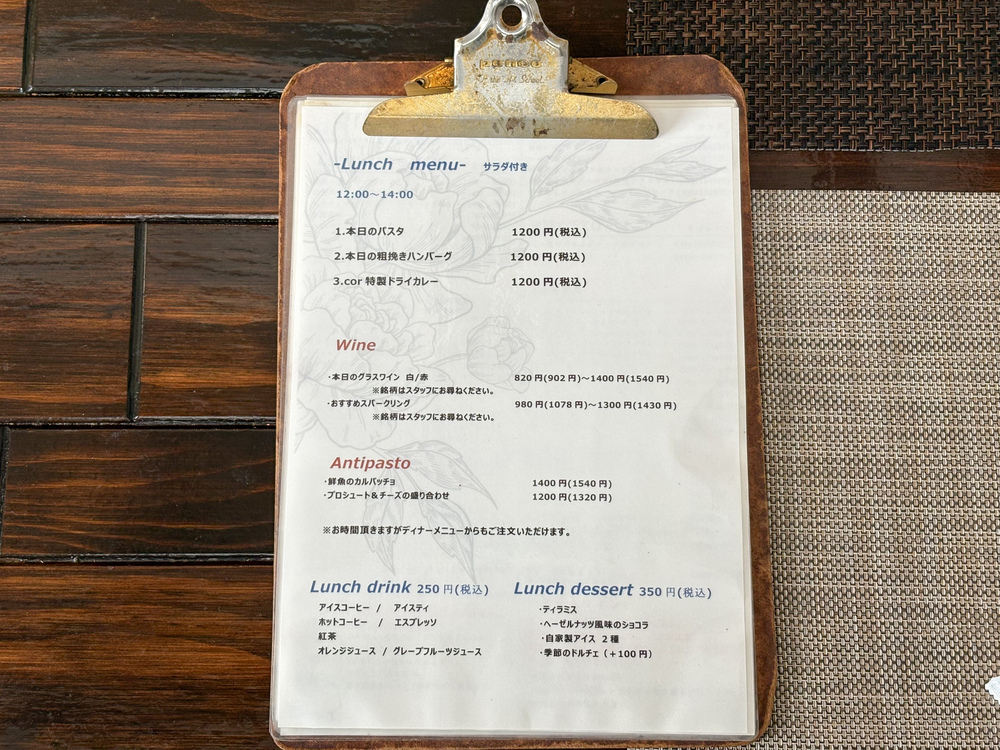 penco
-Lunch menu- サラダ付き
12:00～14:00
1.本日のパスタ 1200 円(税込)
2.本日の粗挽きハンバーグ 1200 円(税込)
3.cor 特製ドライカレー 1200 円(税込)
Wine
・本日のグラスワイン 白/赤 820 円(902 円)～1400 円(1540 円)
※銘柄はスタッフにお尋ねください。
・おすすめスパークリング 980 円(1078 円)～1300 円(1430 円)
※銘柄はスタッフにお尋ねください。
Antipasto
・鮮魚のカルパッチョ 1400 円(1540 円)
・プロシュート＆チーズの盛り合わせ 1200 円(1320 円)
※お時間頂きますがディナーメニューからもご注文いただけます。
Lunch drink 250 円(税込)
アイスコーヒー / アイスティ
ホットコーヒー / エスプレッソ
紅茶
オレンジジュース / グレープフルーツジュース
Lunch dessert 350 円(税込)
・ティラミス
・ヘーゼルナッツ風味のショコラ
・自家製アイス 2 種
・季節のドルチェ（＋100 円）